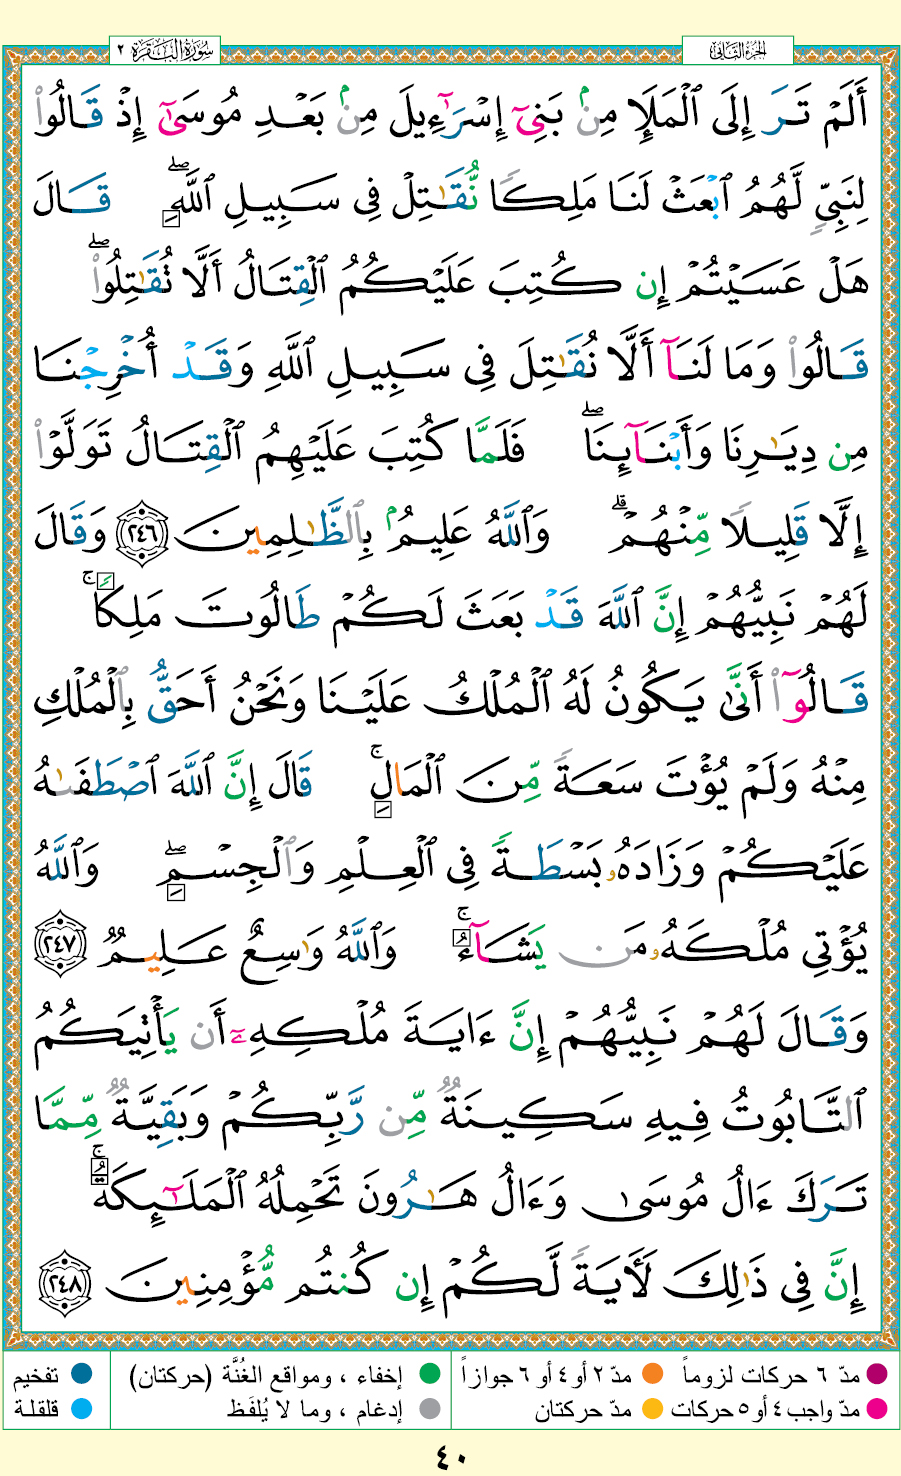 سُورَةُ البَقَرَة ٢
الجزء الثاني
أَلَمۡ تَرَ إِلَى ٱلۡمَلَإِ مِنۢ بَنِيٓ إِسۡرَٰٓءِيلَ مِنۢ بَعۡدِ مُوسَىٰٓ إِذۡ قَالُواْ
لِنَبِيّٖ لَّهُمُ ٱبۡعَثۡ لَنَا مَلِكٗا نُّقَٰتِلۡ فِي سَبِيلِ ٱللَّهِۖ قَالَ
هَلۡ عَسَيۡتُمۡ إِن كُتِبَ عَلَيۡكُمُ ٱلۡقِتَالُ أَلَّا تُقَٰتِلُواْۖ
قَالُواْ وَمَا لَنَآ أَلَّا نُقَٰتِلَ فِي سَبِيلِ ٱللَّهِ وَقَدۡ أُخۡرِجۡنَا
مِن دِيَٰرِنَا وَأَبۡنَآئِنَاۖ فَلَمَّا كُتِبَ عَلَيۡهِمُ ٱلۡقِتَالُ تَوَلَّوۡاْ
إِلَّا قَلِيلٗا مِّنۡهُمۡۚ وَٱللَّهُ عَلِيمُۢ بِٱلظَّٰلِمِينَ ٢٤٦ وَقَالَ
لَهُمۡ نَبِيُّهُمۡ إِنَّ ٱللَّهَ قَدۡ بَعَثَ لَكُمۡ طَالُوتَ مَلِكٗاۚ
قَالُوٓاْ أَنَّىٰ يَكُونُ لَهُ ٱلۡمُلۡكُ عَلَيۡنَا وَنَحۡنُ أَحَقُّ بِٱلۡمُلۡكِ
مِنۡهُ وَلَمۡ يُؤۡتَ سَعَةٗ مِّنَ ٱلۡمَالِۚ قَالَ إِنَّ ٱللَّهَ ٱصۡطَفَىٰهُ
عَلَيۡكُمۡ وَزَادَهُۥ بَسۡطَةٗ فِي ٱلۡعِلۡمِ وَٱلۡجِسۡمِۖ وَٱللَّهُ
يُؤۡتِي مُلۡكَهُۥ مَن يَشَآءُۚ وَٱللَّهُ وَٰسِعٌ عَلِيمٞ ٢٤٧
وَقَالَ لَهُمۡ نَبِيُّهُمۡ إِنَّ ءَايَةَ مُلۡكِهِۦٓ أَن يَأۡتِيَكُمُ
ٱلتَّابُوتُ فِيهِ سَكِينَةٞ مِّن رَّبِّكُمۡ وَبَقِيَّةٞ مِّمَّا
تَرَكَ ءَالُ مُوسَىٰ وَءَالُ هَٰرُونَ تَحۡمِلُهُ ٱلۡمَلَٰٓئِكَةُۚ
إِنَّ فِي ذَٰلِكَ لَأٓيَةٗ لَّكُمۡ إِن كُنتُم مُّؤۡمِنِينَ ٢٤٨
مدّ ٦ حركات لزوماً مدّ ٢ أو ٤ أو ٦ جوازاً إخفاء ، ومواقع الغُنَّة (حركتان) تفخيم
مدّ واجب ٤ أو ٥ حركات مدّ حركتان إدغام ، وما لا يُلفَظ قلقلة
٤٠